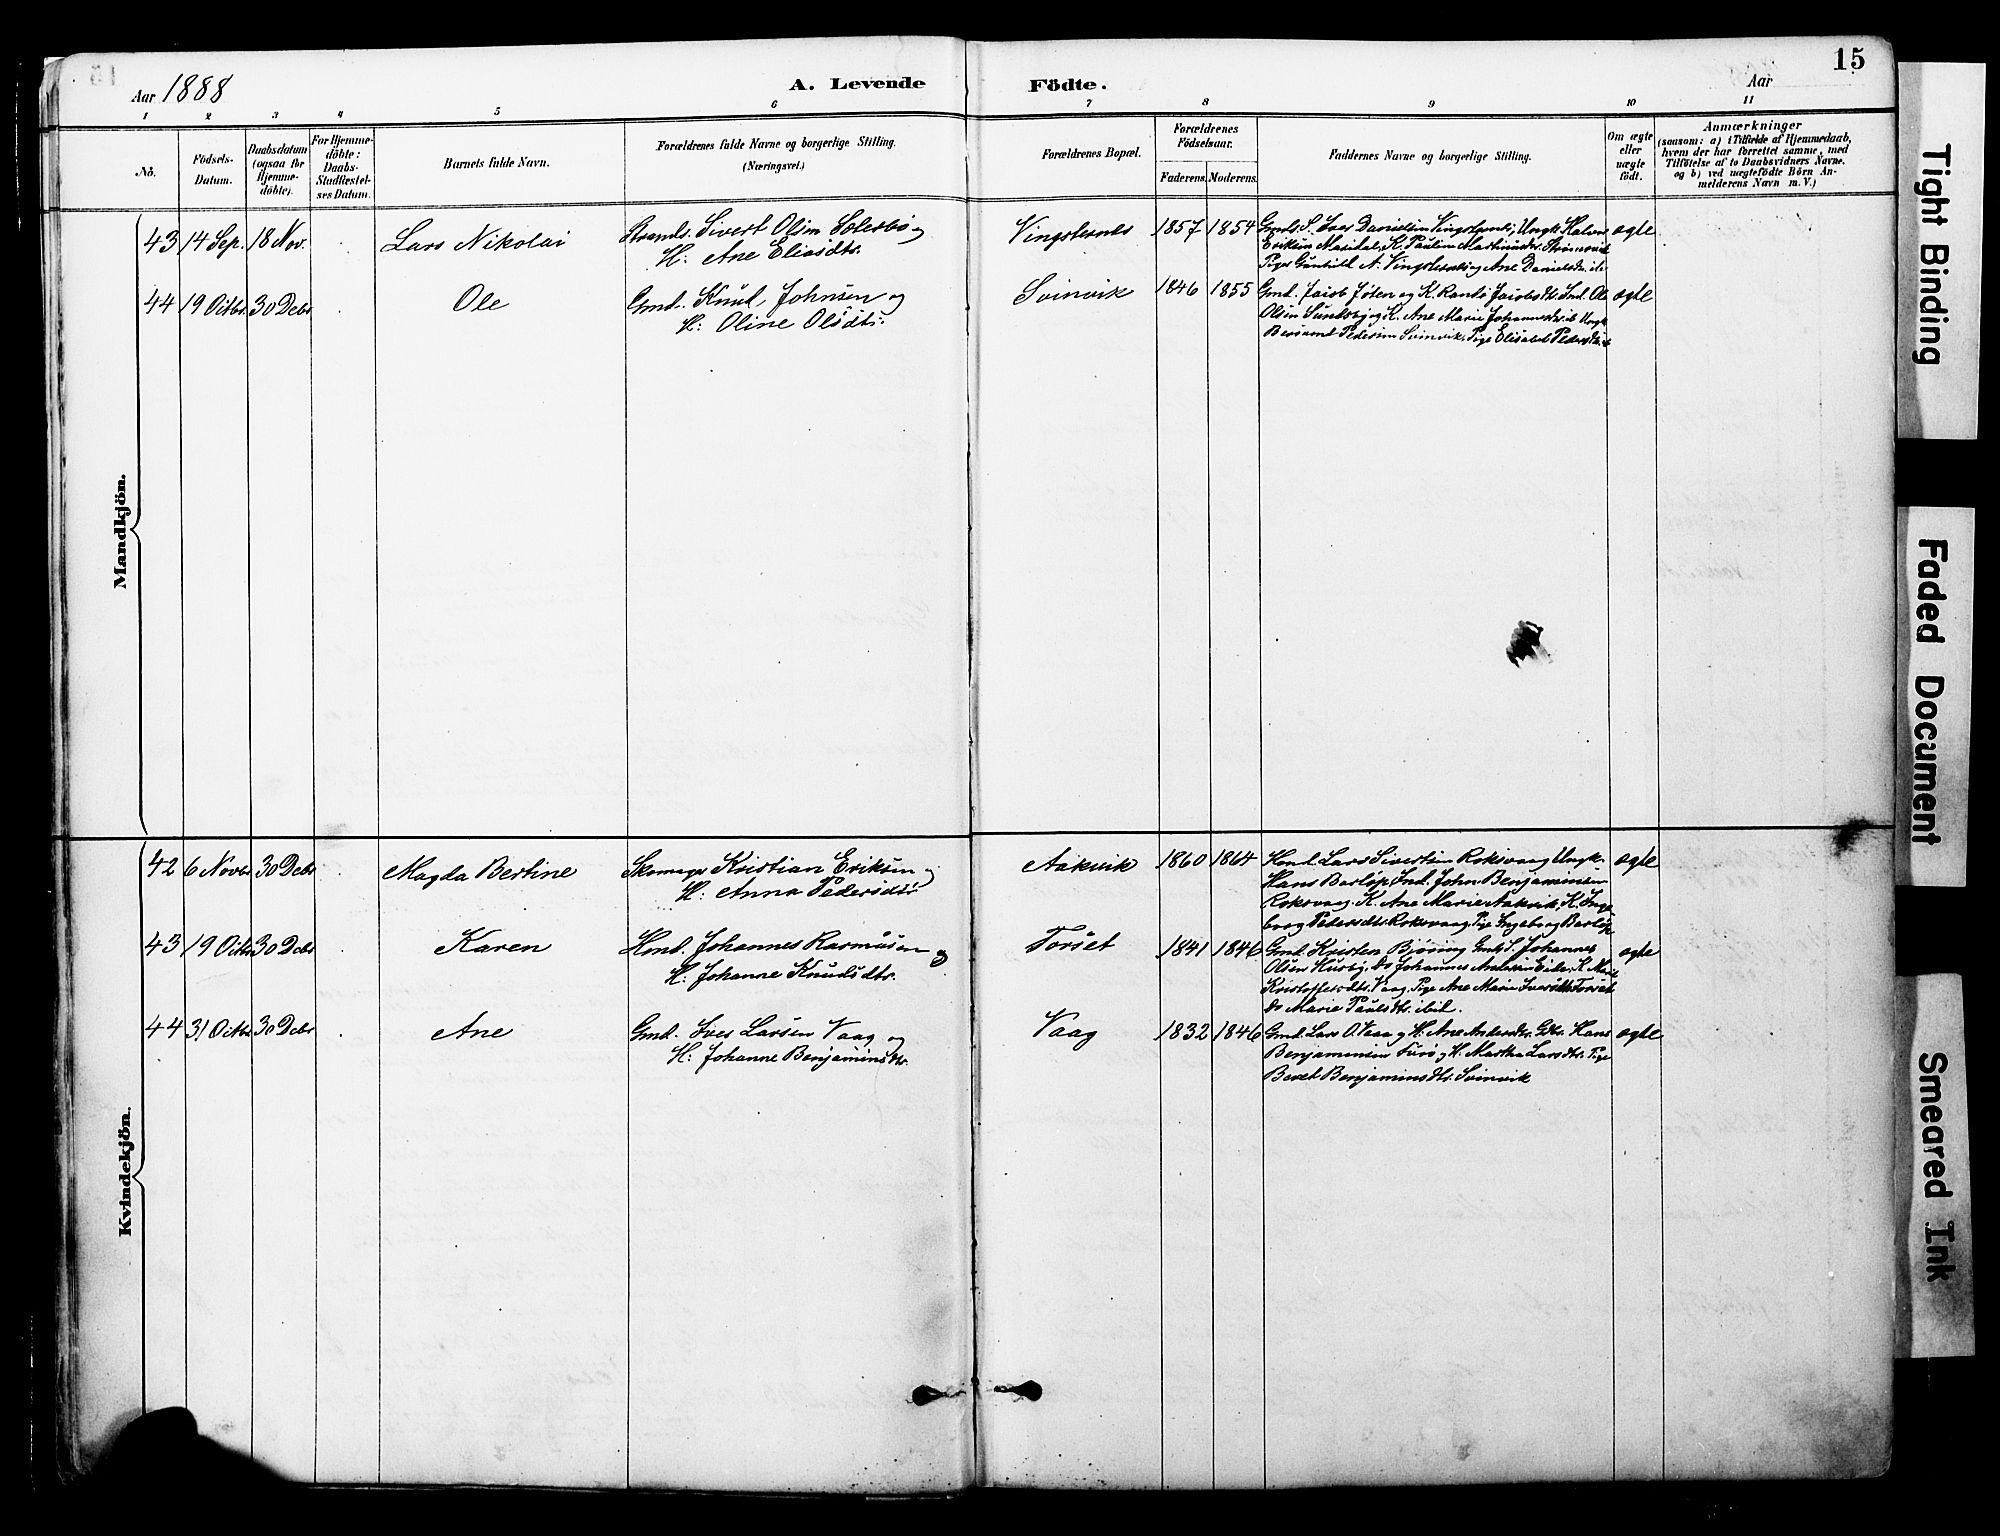 15
Aar 1888
A. Levende Födte.
Aar
1 2 3 4 5 6 7 8 9 10 11
No.
Födsels-Datum.
Daabsdatum (ogsaa for Hjemme-döbte).
For Hjemme-döbte: Daabs-Stadfæstel-ses Datum.
Barnets fulde Navn.
Forældrenes fulde Navne og borgerlige Stilling.
(Næringsvei.)
Forældrenes Bopæl.
Forældrenes Födselsaar.
Faderens. Moderens.
Faddernes Navne og borgerlige Stilling.
Om ægte eller uægte födt.
Anmærkninger
(saasom: a) i Tilfælde af Hjemmedaab,
hvem der har forrettet samme, med
Tilföielse af to Daabsvidners Navne.
og b) ved uægtefödte Börn An-
melderens Navn m. V.)
Mandkjön.
43 14 Sep. 18 Nov. Lars Nikolai
Strands. Sivert Olsen og
H: Ane Eliasdtr.
Vingsternes 1857 1854
Gmds. S. Ivar Danielsen Vingsternes, Ungk. Halvor
Eriksen K. Pauline
Pige Gunhild A. Vingsternes og Ane Danielsdtr. ib.
ægte
44 19 Octbr. 30 Debr Ole
Gmd. Knud Johnsen og
H: Oline Olsdtr.
Svinvik 1846 1855
Gmd. Jacob og K. Jacobsdtr. Ind. Ole
Olsen Sundsby og K. Ane Marie Johannesdtr. ib Ungk
Pedersen Svinvik, Pige Elisabet Pedersdtr. ib
ægte
Kvindekjön.
42 6 Novbr 30 Debr Magda Bertine
Skomager Kristian Eriksen og
H: Anna Pedersdtr
Aakvik 1860 1864
Hmd. Lars Sivertsen Roksvaag Ungk.
Hans Ind. John Benjaminsen
Roksvaag. K. Ane Marie Aakvik, K. Inge
borg Pedersdtr. Roksvaag, Pige Ingeborg
ægte
43 19 Octbr 30 Debr Karen
Hmd. Johannes Rasmusen og
H: Johanne Knudsdtr.
Torset 1841 1846
Gmd. Kristen Björing Gmds. S. Johannes
Olsen Husby, do Johannes Eide, K. Marit
Kristoffersdtr. Vaag, Pige Ane Marie Iversdtr Torset
do Marie Paulsdtr. ibid.
ægte
44 31 Octbr 30 Debr Ane
Gmd. Iver Larsen Vaag og
H: Johanne Benjaminsdtr.
Vaag 1832 1846
Gmd. Lars O. Vaag og H. Ane Andersdtr. Gbr. Hans
Benjaminsen og H. Martha Larsdtr. Pige
Beret Benjaminsdtr. Svinvik
ægte
Tight Binding
Faded Document
Smeared Ink